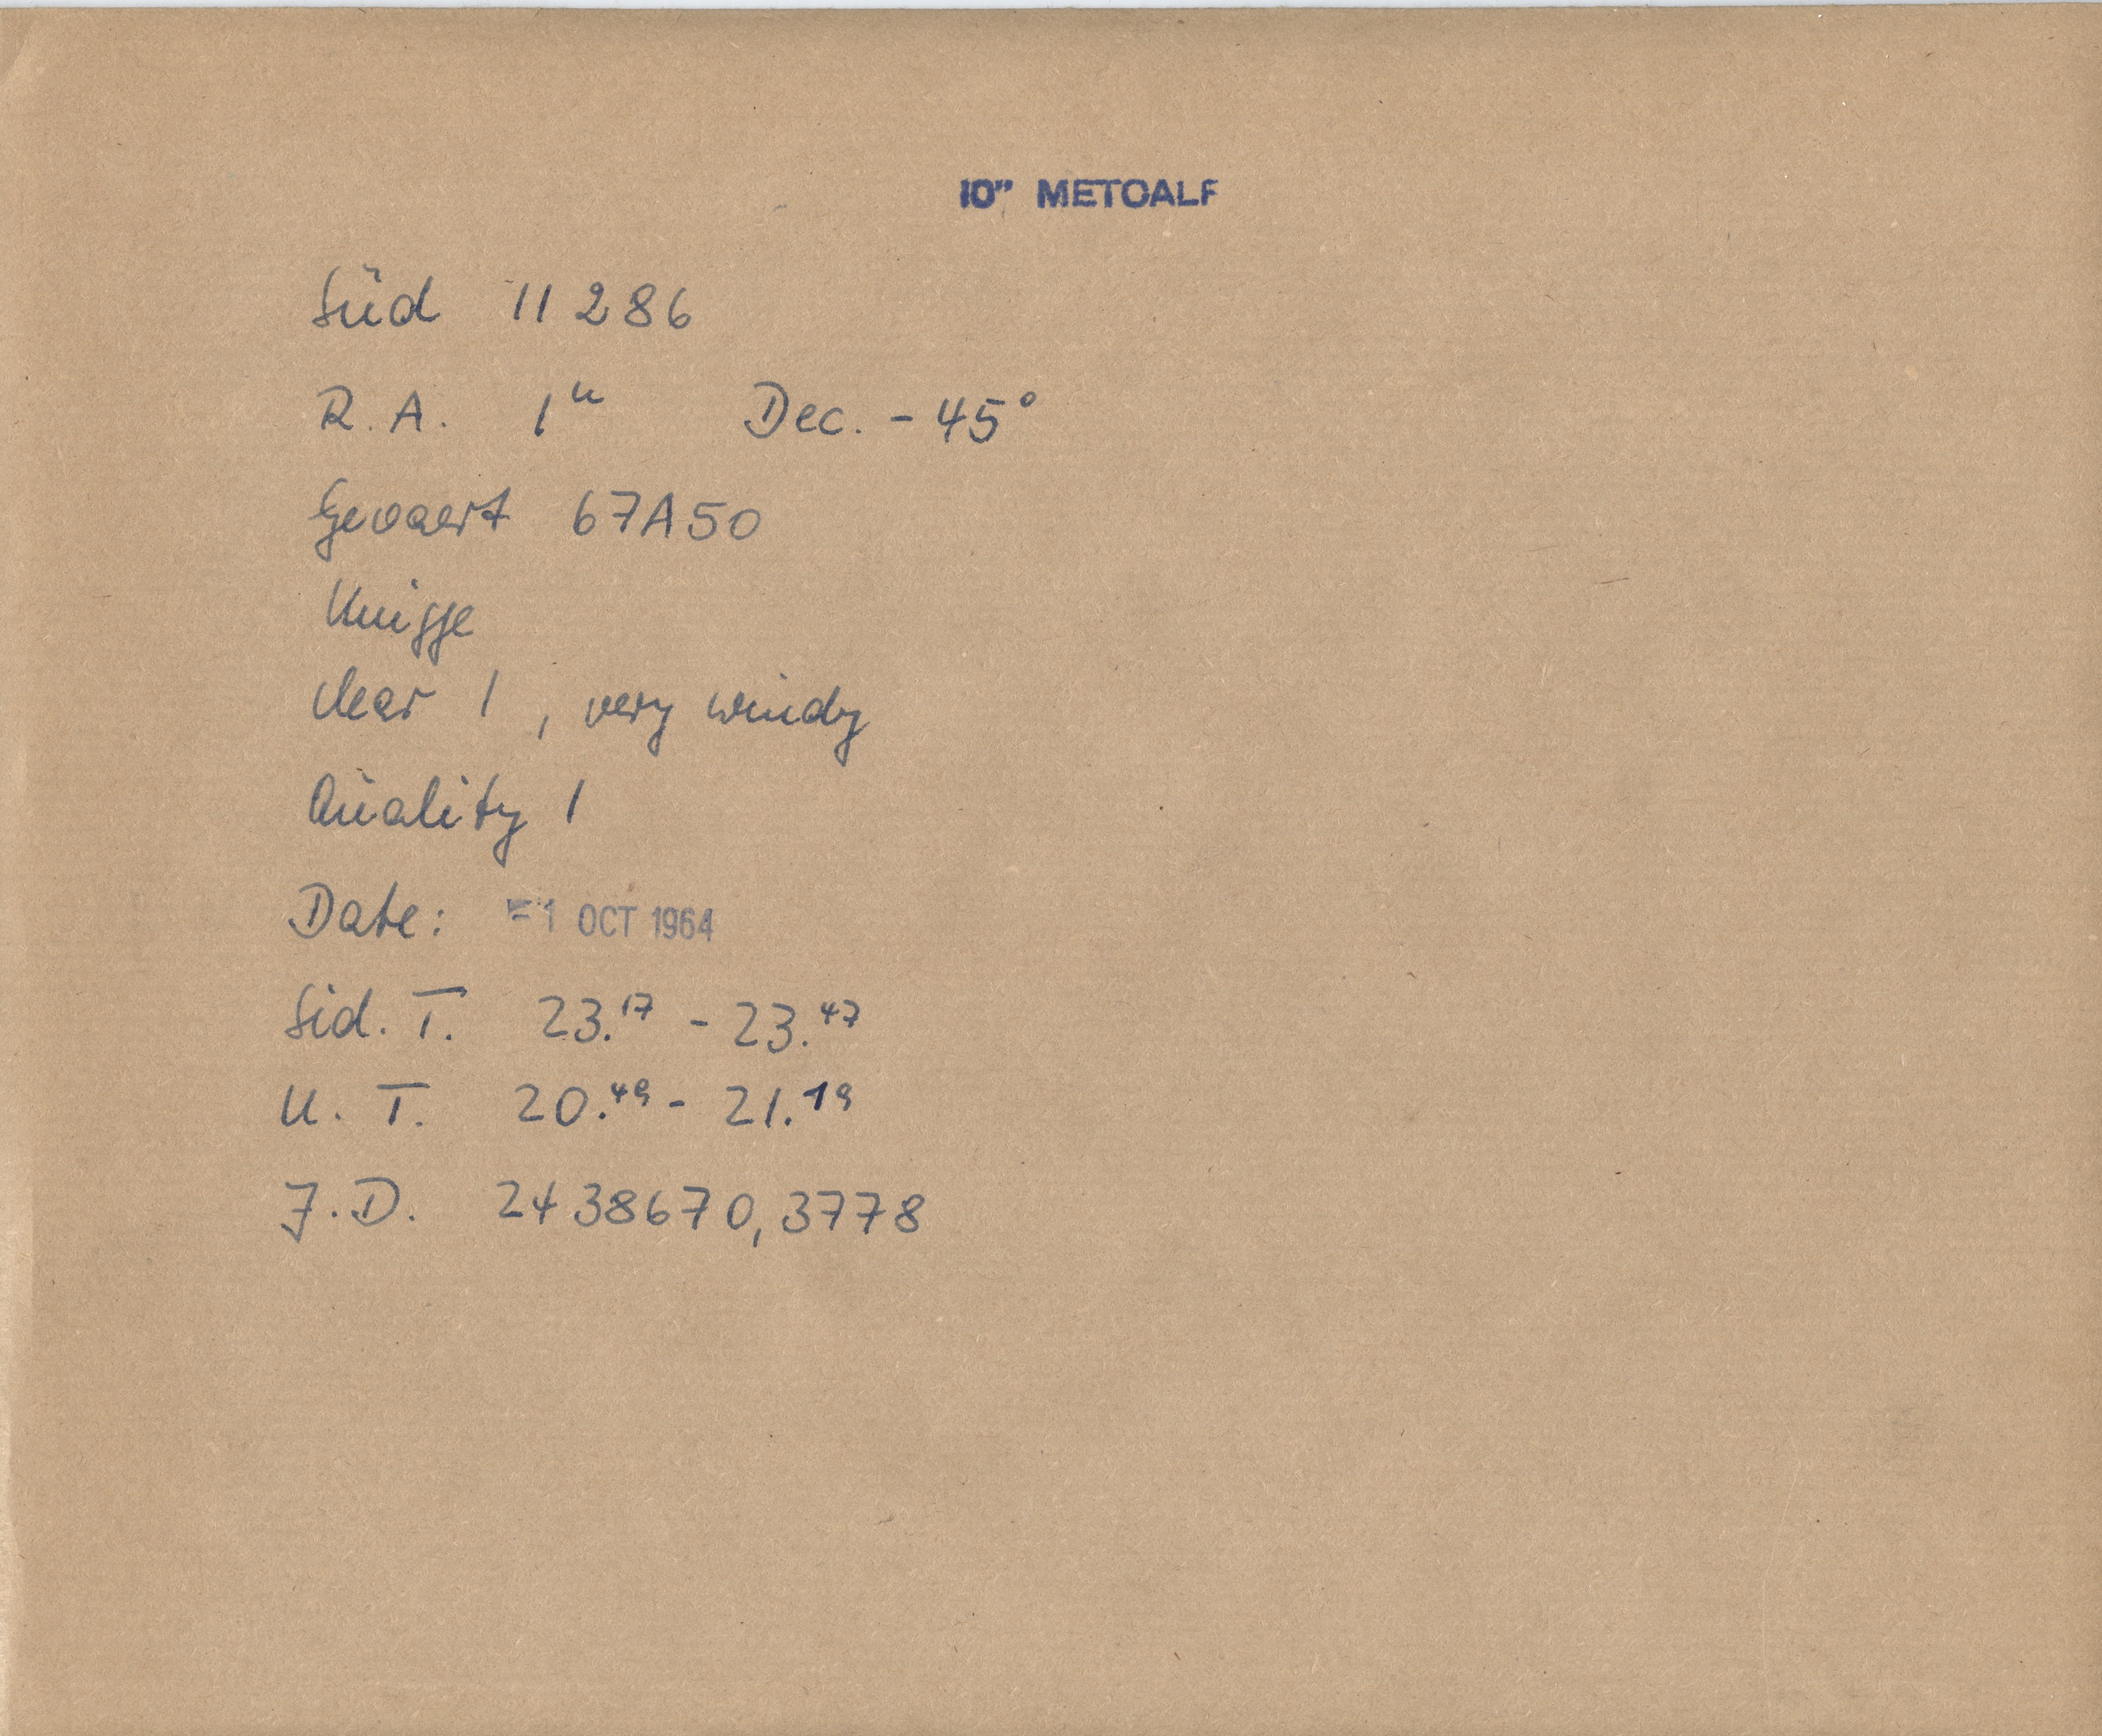 10" METCALF
Süd 11 286
R.A. 1ʰ Dec. - 45°
Gevaert 67A50
Knigge
clear 1, very windy
Quality 1
Date: -1 OCT 1964
Sid. T. 23.¹⁷ - 23.⁴⁷
U. T. 20.⁴⁹ - 21.¹⁹
J.D. 2438670,3778